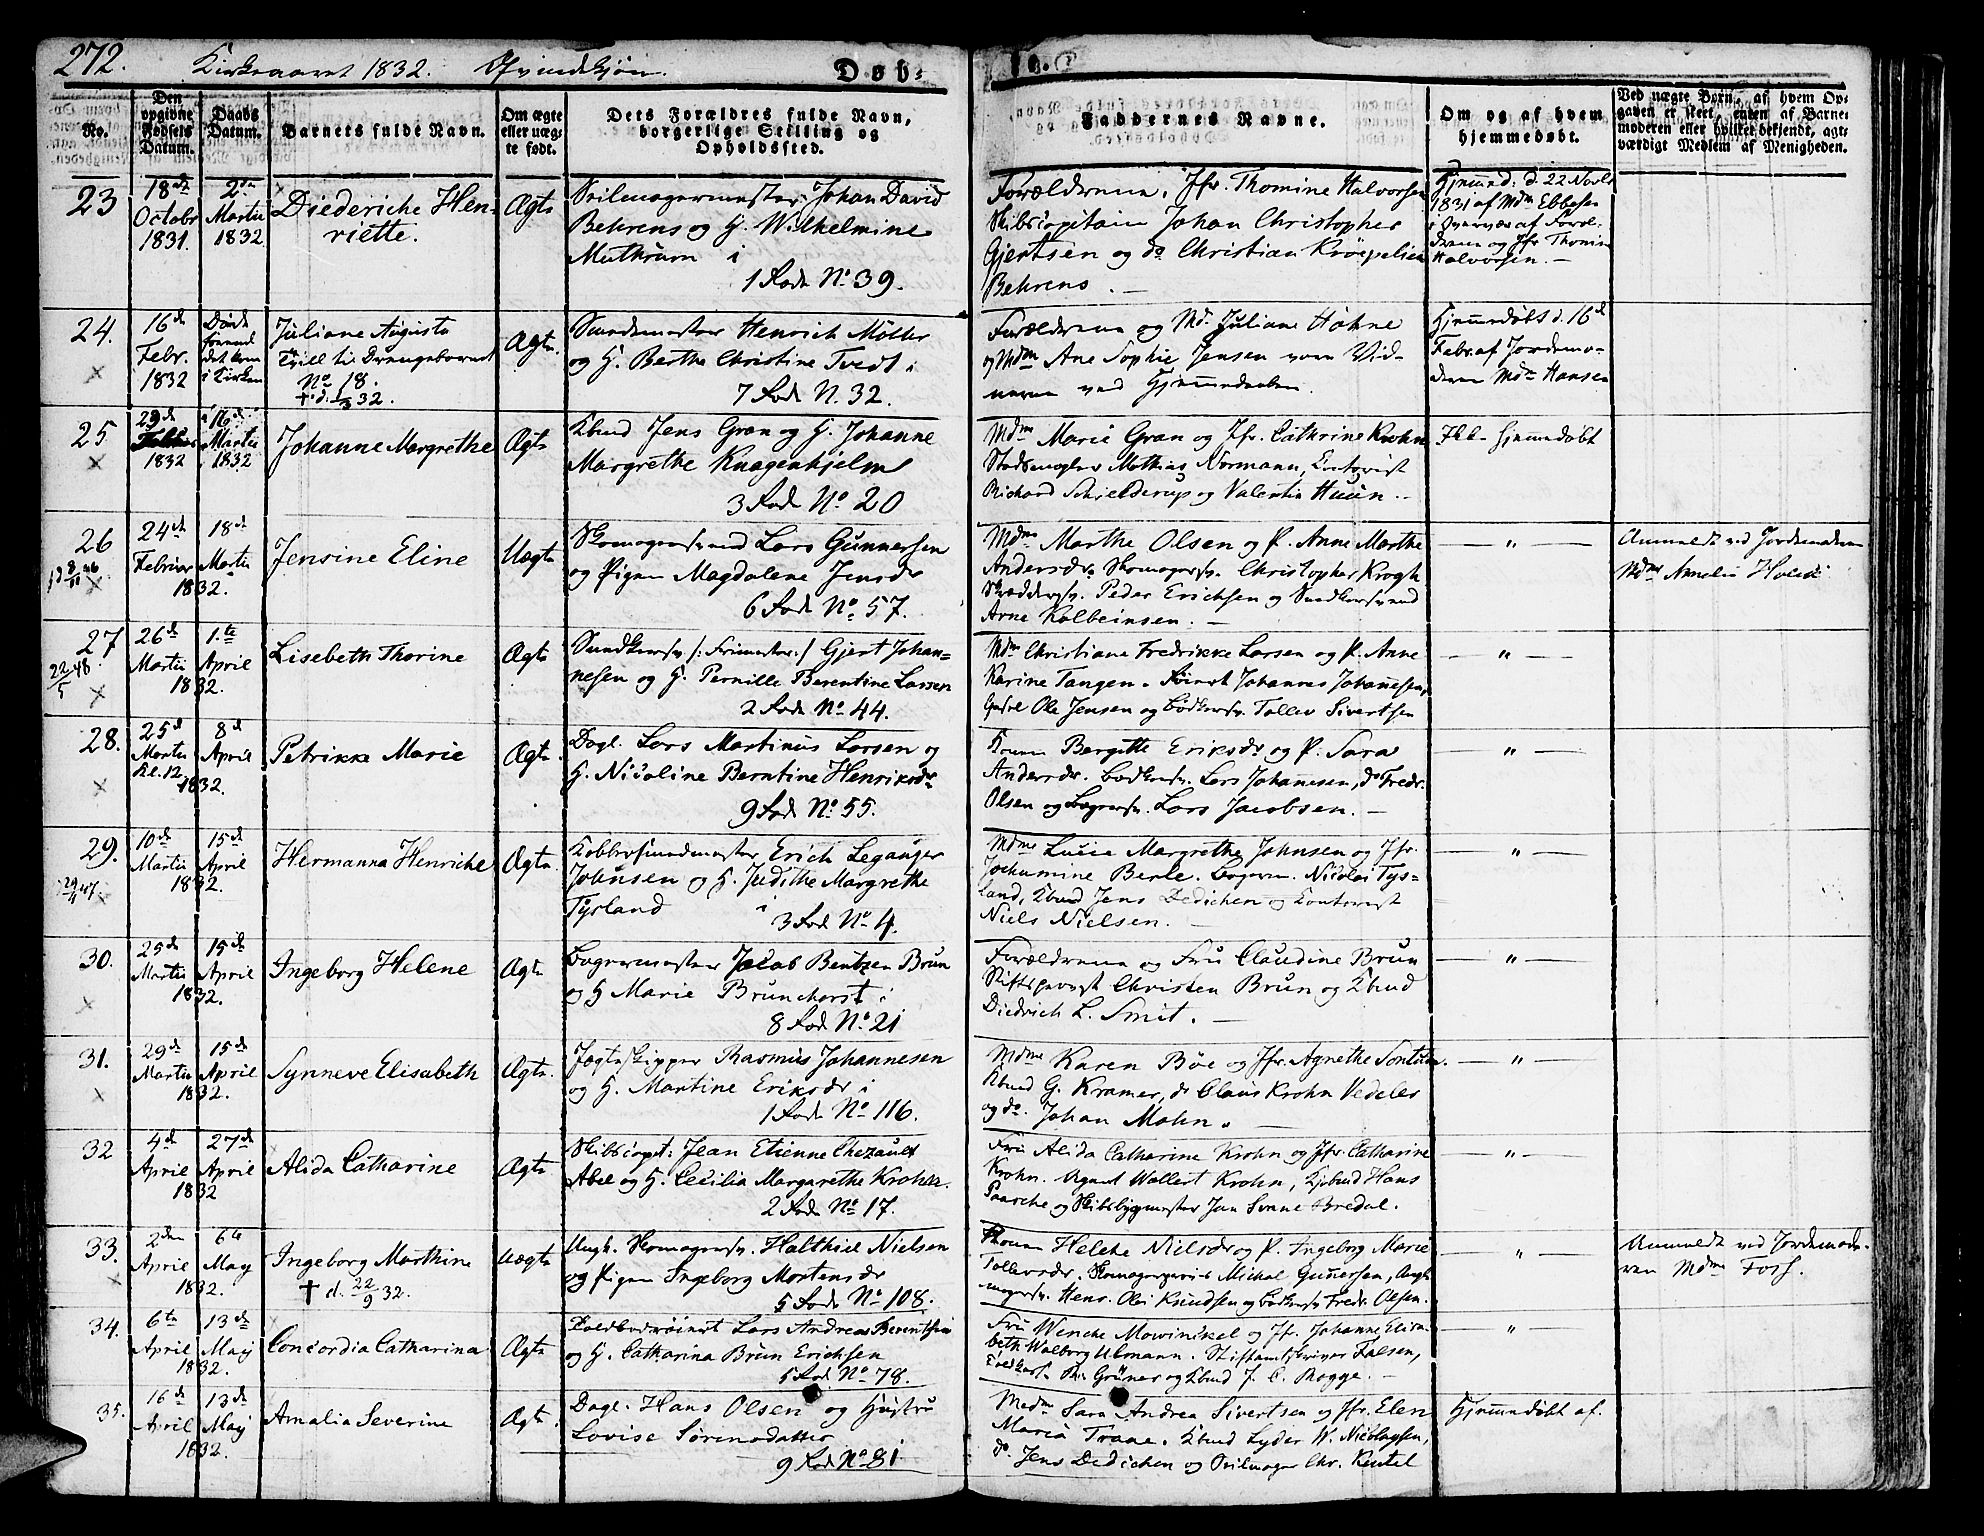 272. Kirkeaaret 1832. Qvindekjøn. Døb-
te.
No.
Den opgivne Fødsels Datum.
Daabs Datum.
Barnets fulde Navn.
Om ægte eller uæg- te født.
Dets Forældres fulde Navn, borgerlige Stilling og Opholdssted.
Faddernes Navne.
Om og af hvem hjemmedøbt.
Ved uægte Børn, af hvem Op- gaven er skeet, enten af Barne- moderen eller hvilket bekjendt, agt- værdigt Medlem af Menigheden.
23
18de Octobr 1831.
2den Martii 1832
Diederiche Hen-
riette.
Ægte
Seilmagermester Johan David
Behrens og H. Wilhelmine
Muthrum i
1 Rode No. 39.
Forældrene. Jfr. Thomine Halvorsen
Skibscapitain Johan Christopher
Gjertsen og do Christian Kröepelien
Behrens. —
Hjemmed: d. 22 Novbr
1831 af Mdm Ebbesen
i Overvær af Foræl-
drene og Jfr Thomine
Halvorsen. —
24.
16de Febr. 1832
Døde
forend
det kom
i Kirken
Juliane Augusta
Trill. til Drengebarnet
No 18.
† d. 1/3 32.
Ægte.
Smedemester Henrich Möller
og H. Berthe Christine Tvedt i
7 Rode N. 32.
Forældrene og Md. Juliane Höhne
og Mdm Ane Sophie Jensen vare Vid-
nerne ved Hjemmedaaben.
Hjemmedøbt d. 16de
Febr. af Jordemo-
deren Mdm Hansen
25
29de Februar 1832
16de Martii 1832
Johanne Margrethe
Ægte
Kbmd Jens Gran og H. Johanne
Margrethe Knagenhjelm
3 Rode No 20
Mdm Marie Gran og Jfr. Cathrine Krohn
Stadsmægler Mathias Normann,
Richard Schielderup og Valentin Huun. —
Ikke Hjemmedøbt
26
24de Februar 1832.
18de Martii
Jensine Eline
Uægte
Skomagersvend Lars Gunnersen
og Pigen Magdalene Jensdr
6 Rode No. 57.
Mdm. Marthe Olsen og P. Anne Marthe
Andersdr. Skomagersv. Christopher Krogh
Skræddersv. Peder Erichsen og Smedkersvend
Arne Kolbeinsen. —
— " —
Anmeldt ved Jordemoderen
Mdme Amelie Holck
27
22/5 48.
26de Martii 1832.
1.te April
Lisebeth Thorine
Ægte
Snedkersv. /: Frimester :/ Gjert Johan-
nesen og H. Pernille Berentine Larsen
2 Rode No 44.
Mdm Christiane Fredrikke Larsen og P. Anne
Karine Tangen. Johannes Johannesen,
Ole Jensen og Bødkersv. Tollev Sivertsen
— " —
28.
25de Martii Kl. 12. 1832.
8de April
Petrikke Marie
Ægte.
Dagl. Lars Martinus Larsen og
H. Nicoline Berntine Henriksdr
9 Rode No 55.
Konen Bergitte Eriksdr og P. Sara
Andersdr. Bødkersv. Lars Johannesen, do Fredr.
Olsen og Bagersv. Lars Jacobsen. —
" —
29.
29/4 47.
10de Martii 1832.
15de April
Hermanna Henriche
Ægte
Kobbersmedmester Erich Leganger
Johnsen og H. Judithe Margrethe
Tysland i 3 Rode No 4.
Mdme Lucie Margrethe Johnsen og Jfr.
Jochumine Berle. Bagerm. Nicolai Tys-
land, Kbmd Jens Dedichen og Kontorist
Niels Nielsen. —
— " —
30.
25de Martii 1832.
15de April
Ingeborg Helene
Ægte
Bagermester Jacob Bentzen Brun
og H Marie Brunchorst i
8 Rode No. 21
Forældrene og Fru Claudine Brun
Stiftsprovst Christen Brun og Kbmd
Diedrich L. Smit. —
— " —
31.
29de Martii 1832.
15de April
Synneve Elisabeth
Ægte.
Jægteskipper Rasmus Johannesen
og H. Martine Eriksdr i
1 Rode No 116.
Mdme Karen Böe og Jfr. Agnethe Sontum.
Kbmd G. Kramer, do Claus Krohn Vedeler
og do. Johan Mohn. —
— " —
32
4de April 1832
27de April
Alida Catharine
Ægte
Skibscapt: Jean Etienne Chezaulx
Abel og H. Cecilia Margarethe Krohn.
2 Rode No 17.
Fru Alida Catharine Krohn og Jfr. Catharine
Krohn. Agent Wollert Krohn, Kjøbmd Hans
Paasche og Skibsbygmester Jan Sonne Bredal.
— " —
33.
2den April 1832.
6te May
Ingeborg Marthine
† d. 22/9 32.
Uægte
Ungk. Skomagersv. Halthiel Nielsen
og Pigen Ingeborg Mortensdr
5 Rode No 108.
Konen Helche Nielsdr og P. Ingeborg Marie
Tollevsdr. Michal Gunersen,
Hens. Oles Knudsen og Bødkersv. Fredr. Olsen.
— " —
Anmeldt ved Jordemode-
ren Mdme Foss.
34.
6te April 1832.
13de May
Concordia Catharina
Ægte
Lars Andreas Berentsen
og H. Catharina Brun Erichsen
5 Rod. No 78.
Fru Wenche Mowinckel og Jf. Johanne Elisa-
beth Walborg Ulmann. Stiftamtskriver Falsen,
Th. Grüner og Kbmd J. C. Rogge. —
" —
35.
16de April 1832.
13de May
Amalia Severine
Ægte.
Dagl. Hans Olsen og Hustru
Lovise Sørensdatter
9 Rode No 81
Mdme Sara Andrea Sivertsen og Jfr. Elen
Maria Trane. Kbmd Lyder W. Nicolaysen,
do. Jens Dedichen og Seilmager Chr. Kentel
Hjemmedøbt af.